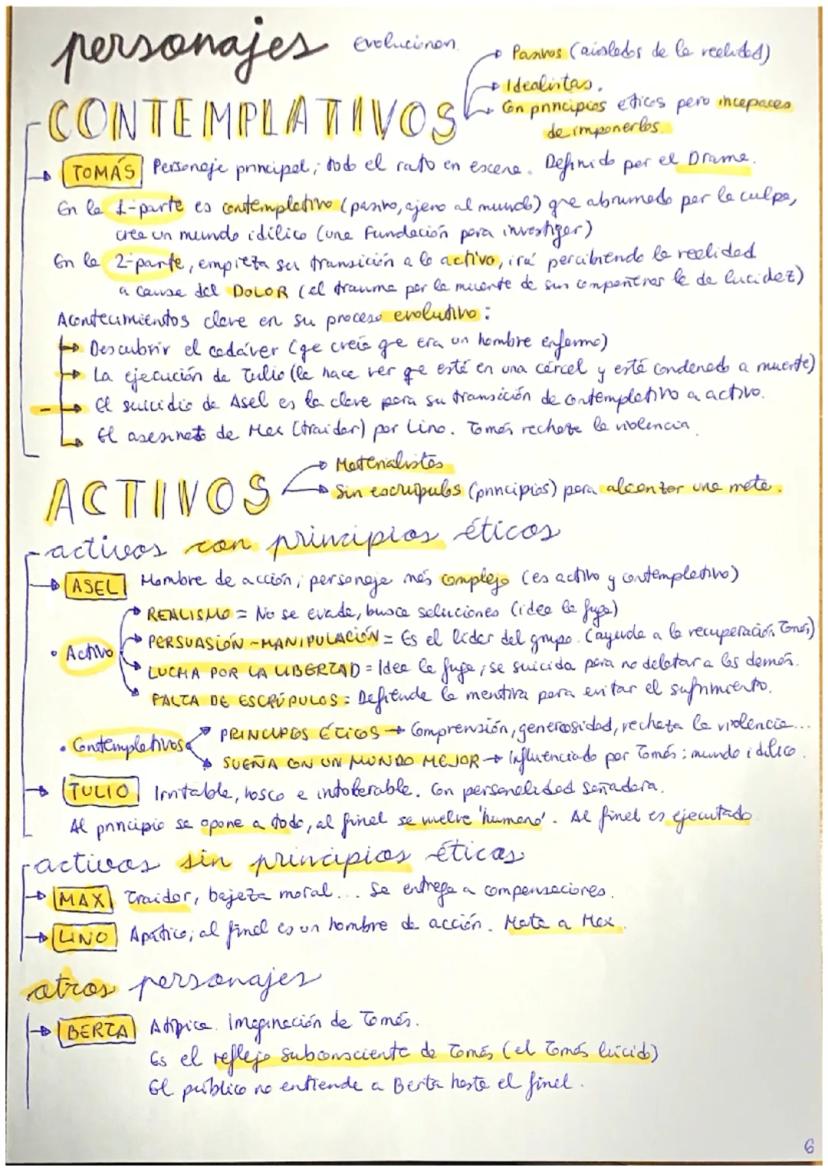 personajes evolucionan
→ Pasivos (aislados de la realidad)
→ Idealistas.
CONTEMPLATIVOS → Con principios éticos pero incapaces
de imponerlos.
→ TOMÁS Personaje principal; todo el rato en escena. Definido por el Drama.
En la 1ª parte es contemplativo (pasivo, ajeno al mundo) que abrumado por la culpa,
crea un mundo idílico (una Fundación para investigar)
En la 2ª parte, empieza su transición a lo activo, irá percibiendo la realidad
a causa del DOLOR (el trauma por la muerte de sus compañeros le da lucidez)
Acontecimientos clave en su proceso evolutivo:
→ Descubrir el cadáver (qe creía qe era un hombre enfermo)
→ La ejecución de Tulio (le hace ver qe está en una cárcel y está condenado a muerte)
→ El suicidio de Asel es la clave para su transición de contemplativo a activo.
→ El asesinato de Max (traidor) por Lino. Tomás rechaza la violencia
→ Materialistas
ACTIVOS → Sin escrúpulos (principios) para alcanzar una meta.
activos con principios éticos
→ ASEL Hombre de acción; personaje más complejo (es activo y contemplativo)
→ REALISMO = No se evade, busca soluciones (idea la fuga)
• Activo → PERSUASIÓN-MANIPULACIÓN = Es el líder del grupo. (ayuda a la recuperación Tomás)
→ LUCHA POR LA LIBERTAD = Idea la fuga; se suicida para no delatar a los demás.
→ FALTA DE ESCRÚPULOS: Defiende la mentira para evitar el sufrimiento.
• Contemplativos → PRINCIPIOS ÉTICOS → Comprensión, generosidad, rechaza la violencia...
→ SUEÑA CON UN MUNDO MEJOR → Influenciado por Tomás: mundo idílico.
→ TULIO Irritable, tosco e intolerable. Con personalidad soñadora.
Al principio se opone a todo, al final se vuelve 'humano'. Al final es ejecutado
activos sin principios éticos
→ MAX Traidor, bajeza moral... Se entrega a compensaciones.
→ LINO Apático; al final es un hombre de acción. Mata a Max.
otros personajes
→ BERTA Atípica. Imaginación de Tomás.
Es el reflejo subconsciente de Tomás (el Tomás lúcido)
El público no entiende a Berta hasta el final.
6